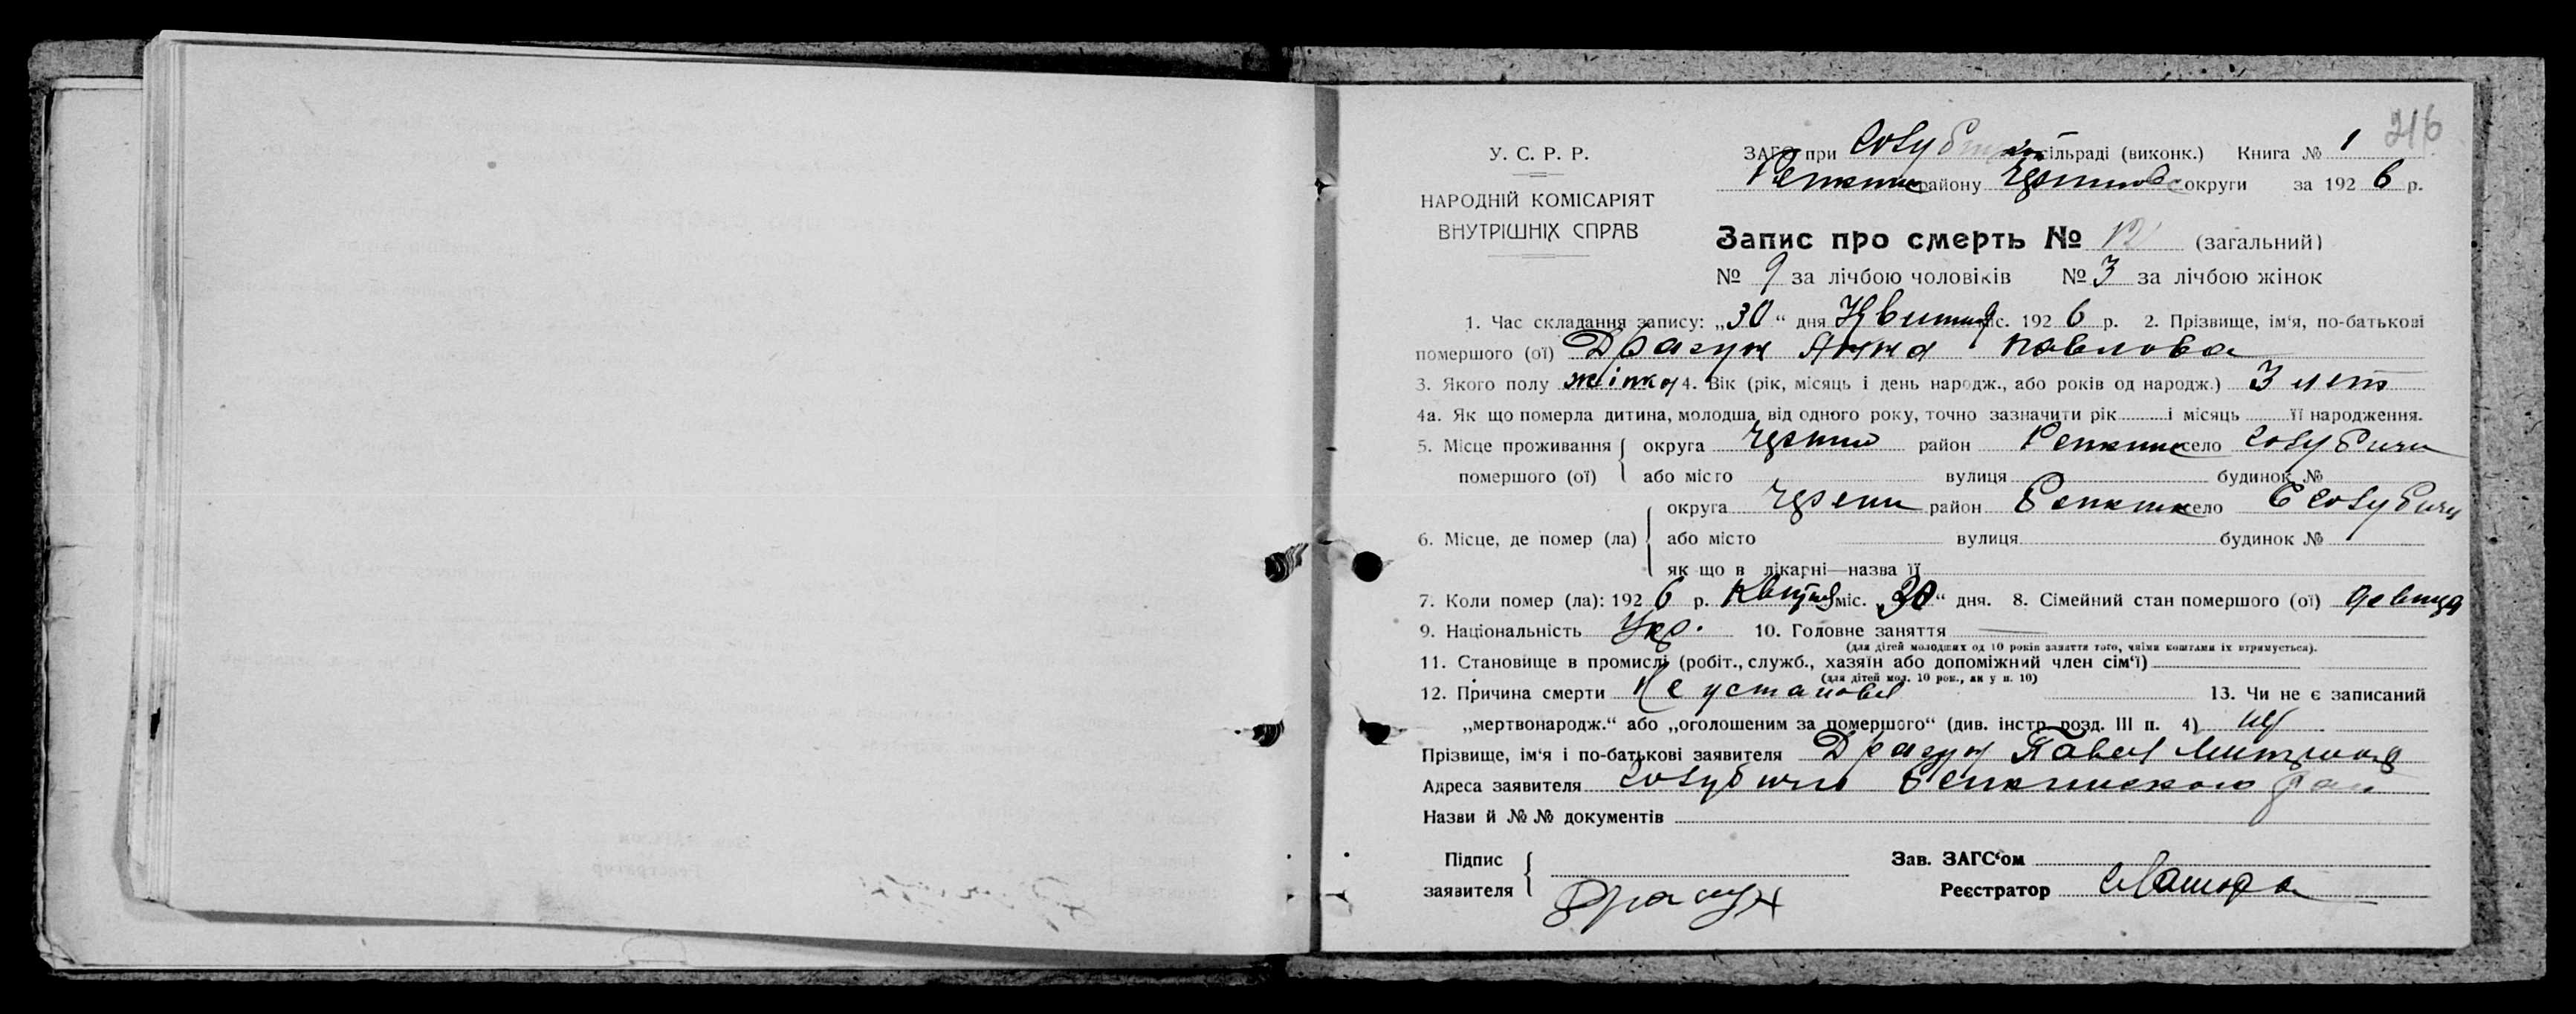 216
У. С. Р. Р.
НАРОДНІЙ КОМІСАРІЯТ
ВНУТРІШНІХ СПРАВ
ЗАГС при сільраді (виконк.) Книга № 1
Репкин району округи за 1926 р.
Запис про смерть № 12 (загальний)
№ 9 за лічбою чоловіків № 3 за лічбою жінок
1. Час складання запису: „30“ дня Квитня міс. 1926 р. 2. Прізвище, ім‘я, по-батькові
помершого (ої) Драгун Анна Павлова
3. Якого полу жінка 4. Вік (рік, місяць і день народж., або років од народж.) 3 лет
4а. Як що померла дитина, молодша від одного року, точно зазначити рік і місяць її народження.
5. Місце проживання округа район село Голубичи
помершого (ої) або місто вулиця будинок №
округа район село С Голубичи
6. Місце, де помер (ла) або місто вулиця будинок №
як що в лікарні—назва її
7. Коли помер (ла): 1926 р. Квітня міс. 30“ дня. 8. Сімейний стан помершого (ої) девица
9. Національність Укр. 10. Головне заняття —
(для дітей молодших од 10 років заняття того, чиїми коштами їх втримується).
11. Становище в промислі (робіт., служб., хазяїн або допоміжний член сім‘ї)
(для дітей мол. 10 рок., як у п. 10)
12. Причина смерти Не установл 13. Чи не є записаний
„мертвонародж.“ або „оголошеним за помершого“ (див. інстр. розд. III п. 4)
Прізвище, ім‘я і по-батькові заявителя Драгун Павел
Адреса заявителя Голубичи Репкинского рай
Назви й №№ документів
Підпис
заявителя Драгун
Зав. ЗАГС‘ом
Реєстратор